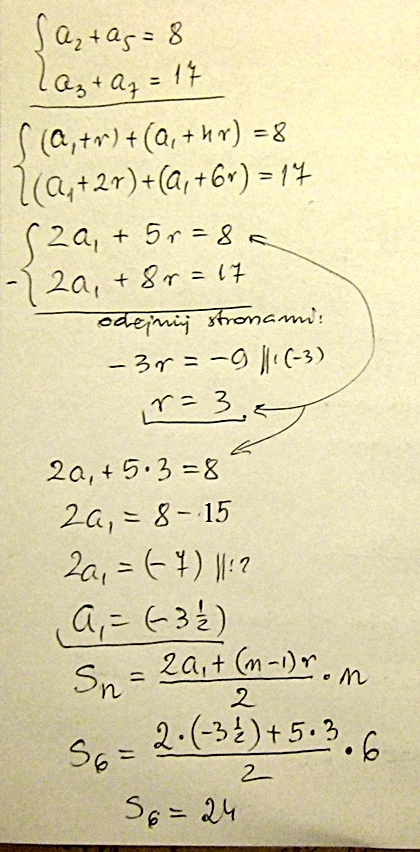 a₂ + a₅ = 8
a₃ + a₇ = 17
(a₁+r) + (a₁+4r) = 8
(a₁+2r) + (a₁+6r) = 17
2a₁ + 5r = 8
- 2a₁ + 8r = 17
odejmij stronami:
-3r = -9 ||:(-3)
r = 3
2a₁ + 5·3 = 8
2a₁ = 8 - 15
2a₁ = (-7) ||:2
a₁ = (-3 1/2)
Sₙ = (2a₁ + (n-1)r)/2 · n
S₆ = (2·(-3 1/2) + 5·3)/2 · 6
S₆ = 24